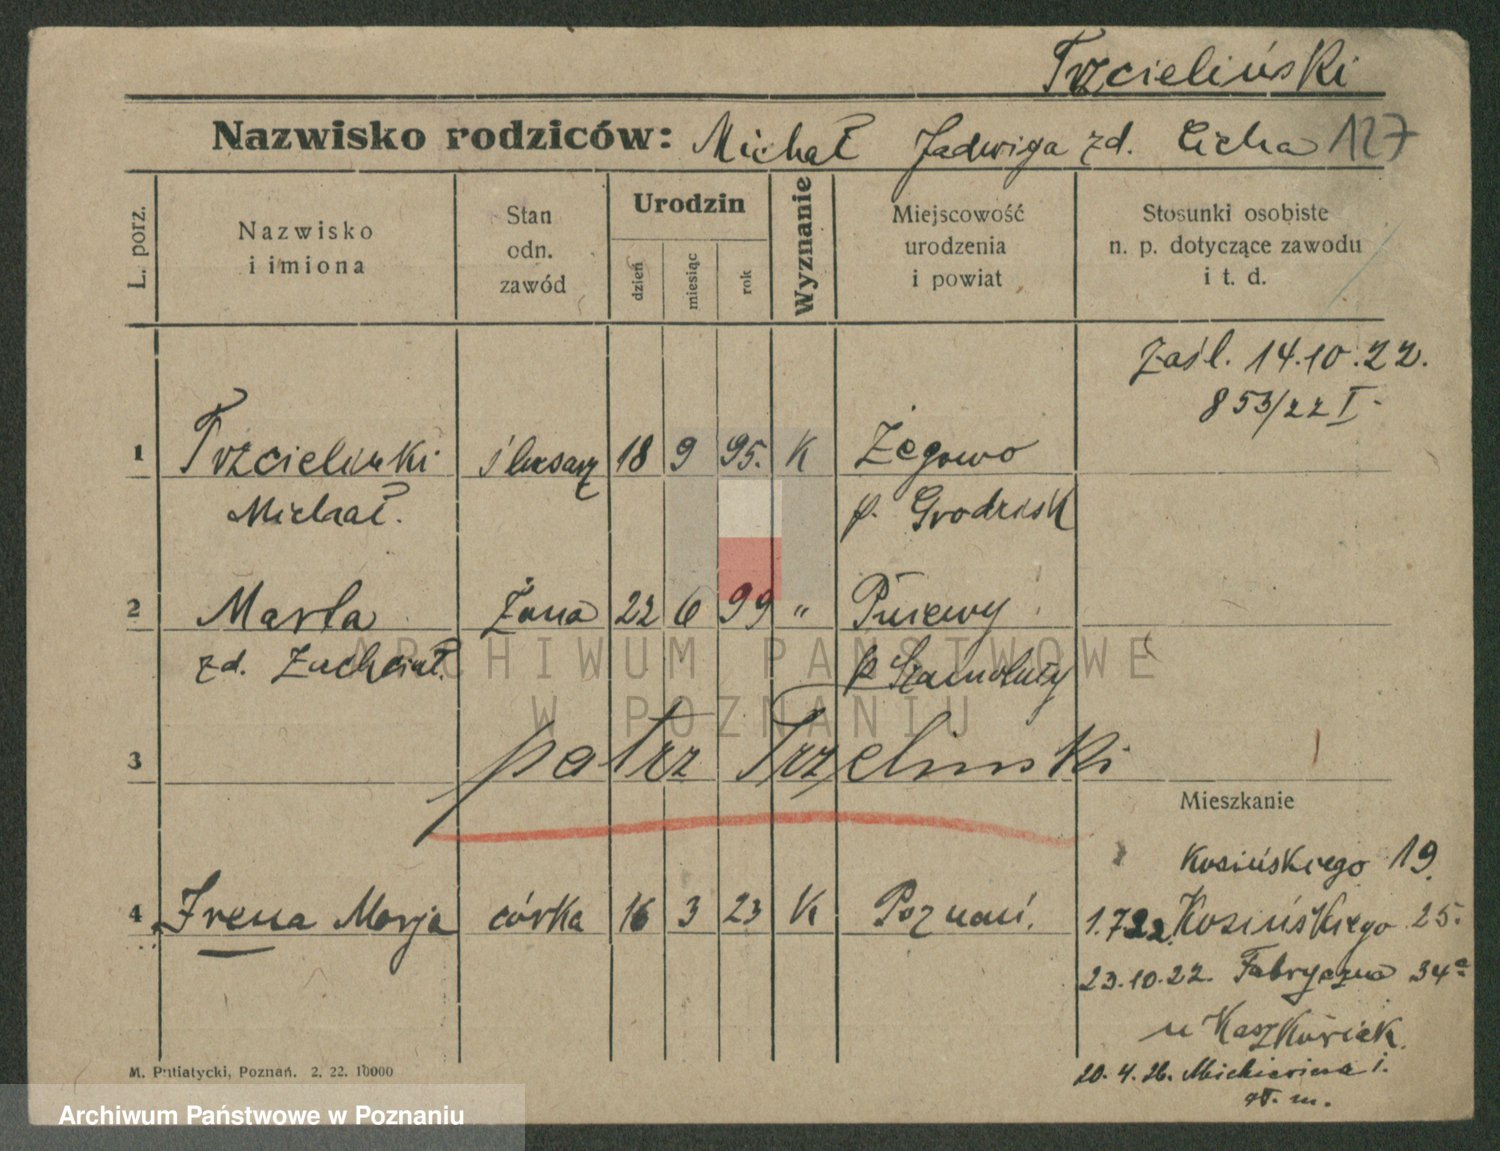 Trzcieliński
Nazwisko rodziców: Michał Jadwiga zd. Cicha 127
L. porz.
Nazwisko
i imiona
Stan
odn.
zawód
Urodzin
dzień
miesiąc
rok
Wyznanie
Miejscowość
urodzenia
i powiat
Stosunki osobiste
n. p. dotyczące zawodu
i t. d.
Zaśl. 14.10.22.
853/22 I
1 Trzcielinski ślusarz 18 9 95. K Żegowo
Michał. p. Grodzisk
2 Marta Żona 22 6 99 "
zd. p Szamotuły
3 patrz Trzelinski
Mieszkanie
Kosińskiego 19.
4 Irena Marja córka 16 3 23 K Poznań. 1.7.22 Kosińskiego 25.
23.10.22. Fabryczna 34a
u Kaszkowiak.
20.4.26.
M. Putiatycki, Poznań. 2. 22. 10000
ARCHIWUM PAŃSTWOWE
W POZNANIU
Archiwum Państwowe w Poznaniu